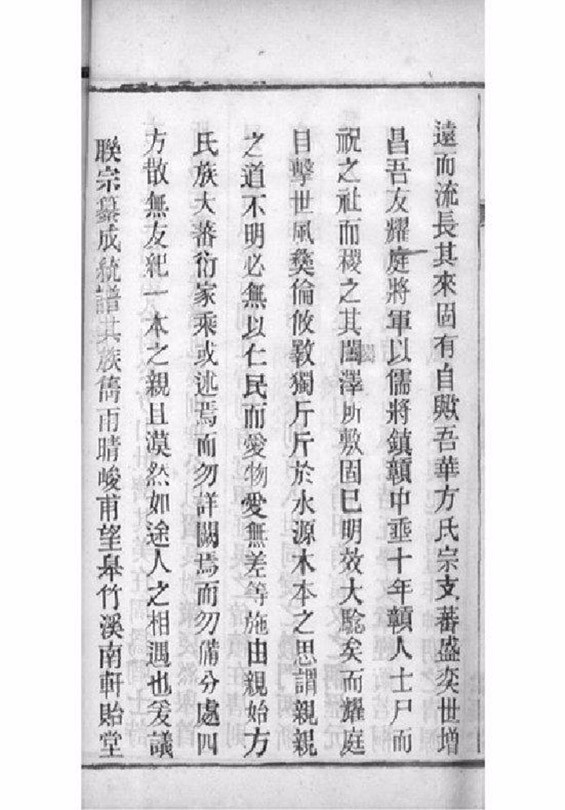 遠而流長其來固有自歟吾華方氏宗支蕃盛奕世增
昌吾友耀庭將軍以儒將鎮贛中垂十年贛人士尸而
祝之社而稷之其閭澤所敷固已明效大驗矣而耀庭
目擊世風彝倫攸斁獨斤斤於水源木本之思謂親親
之道不明必無以仁民而愛物愛無差等施由親始方
氏族大蕃衍家乘或述焉而勿詳闕焉而勿備分處四
方散無友紀一本之親且漠然如途人之相遇也爰議
聯宗纂成統譜其族儁雨晴峻甫望皋竹溪南軒貽堂